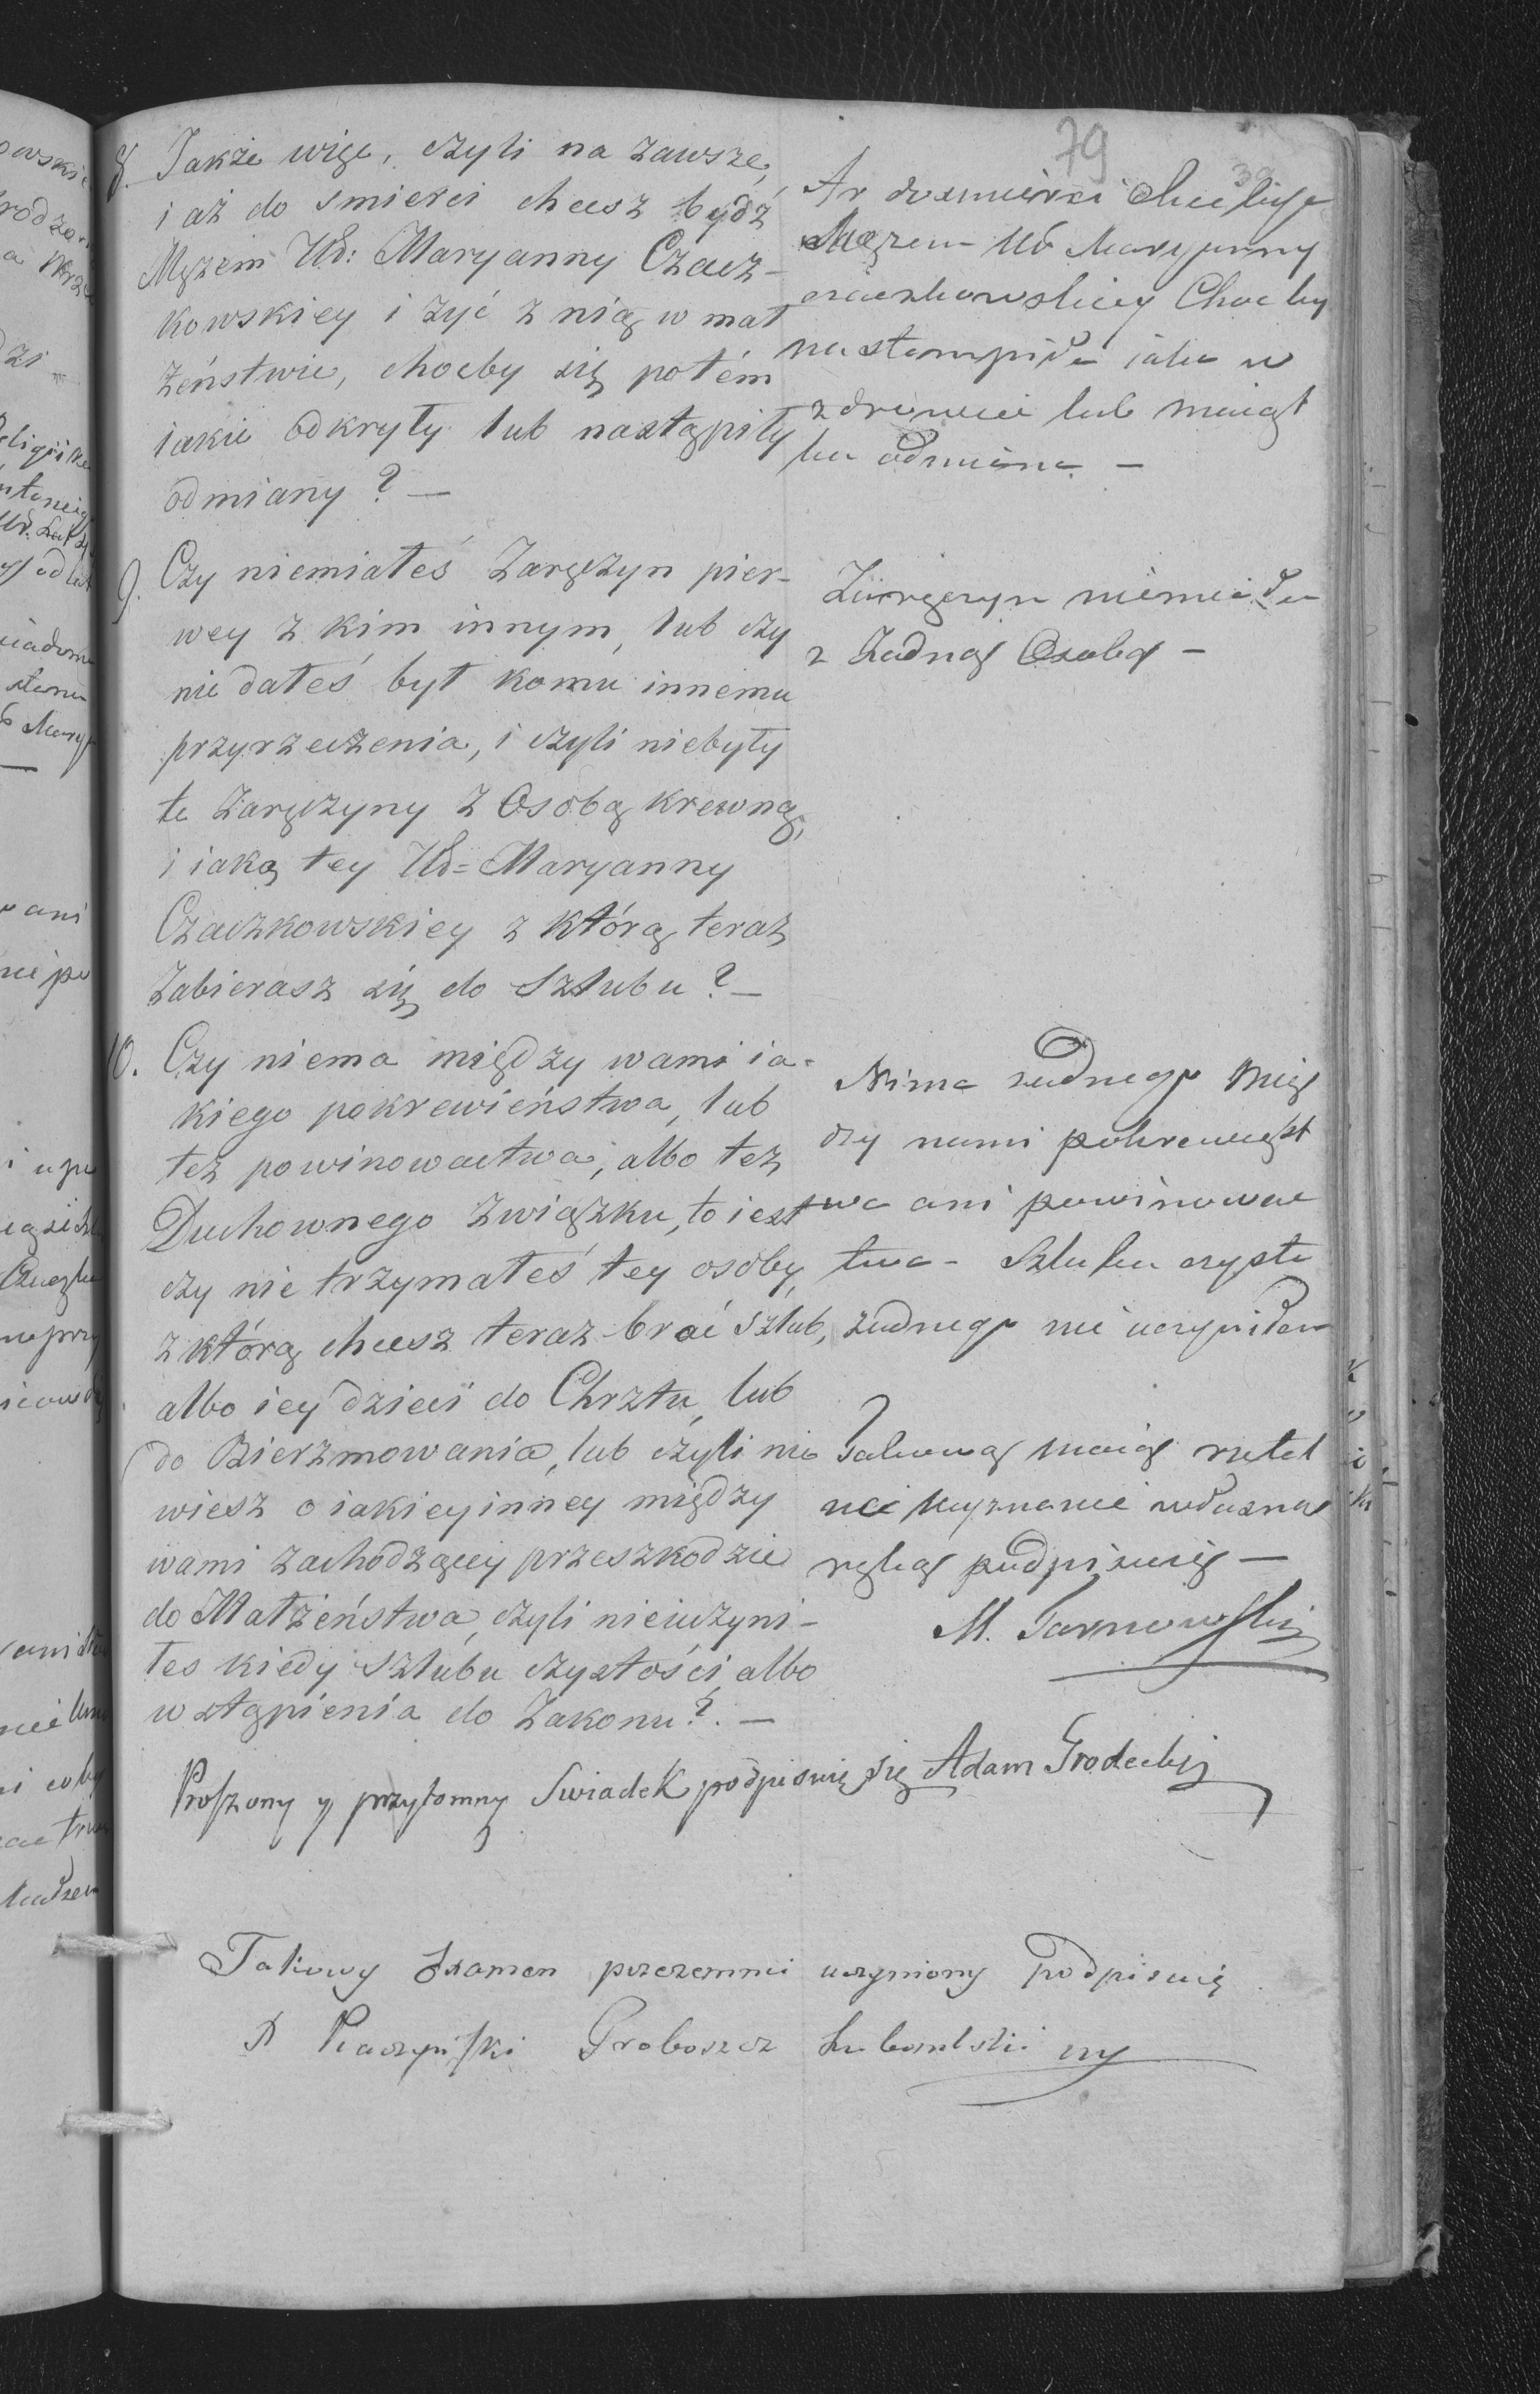 79
8. Jakże więc, czyli na zawsze,
i aż do smierci chcesz bydź
Mężem Ur: Maryanny Czacz-
kowskiey i żyć z nią w mał
żeństwie, choćby się potém
iakie odkryły lub nastąpiły
odmiany? —
Aż do smierci chcę bydź
Mężem Ur Maryanny
czaczkowskiey Choc by
nastompiła iaka w
zdrowiu lub maiąt
ku odmiana —
9. Czy niemiałeś Zaręczyn pier-
wey z kim innym, lub czy
nie dałeś był komu innemu
przyrzeczenia, i czyli niebyły
te Zaręczyny z Osobą krewną,
i iaką tey Ur= Maryanny
Czaczkowskiey z którą teraz
Zabierasz się do Szlubu? —
Zaręczyn niemiałem
z Żadną Osobą —
10. Czy niema między wami ia-
kiego pokrewieństwa, lub
też powinowactwa, albo też
Duchownego Związku, to iest
czy nie trzymałeś tey osoby,
z którą chcesz teraz brać szlub,
albo iey dzieci do Chrztu, lub
do Bierzmowania, lub czyli nie
wiesz o iakiey inney między
wami zachodzącey przeszkodzie
do Małżeństwa, czyli nieuczyni-
łes kiedy szlubu czystości albo
wstąpienia do Zakonu?. —
Nima żadnego mię
dzy nami pokrewięst
wa ani powinowac
twa - Szlubu czysto
żadnego nie uczyniłem
Takową moią rzetel
ne wyznanie własną
ręką podpisuię —
M. Tarnowski
Proszony y przytomny Swiadek podpisuię się Adam Grodecki
Takowy Examen przezemnie uczyniony podpisuię
Proboszcz